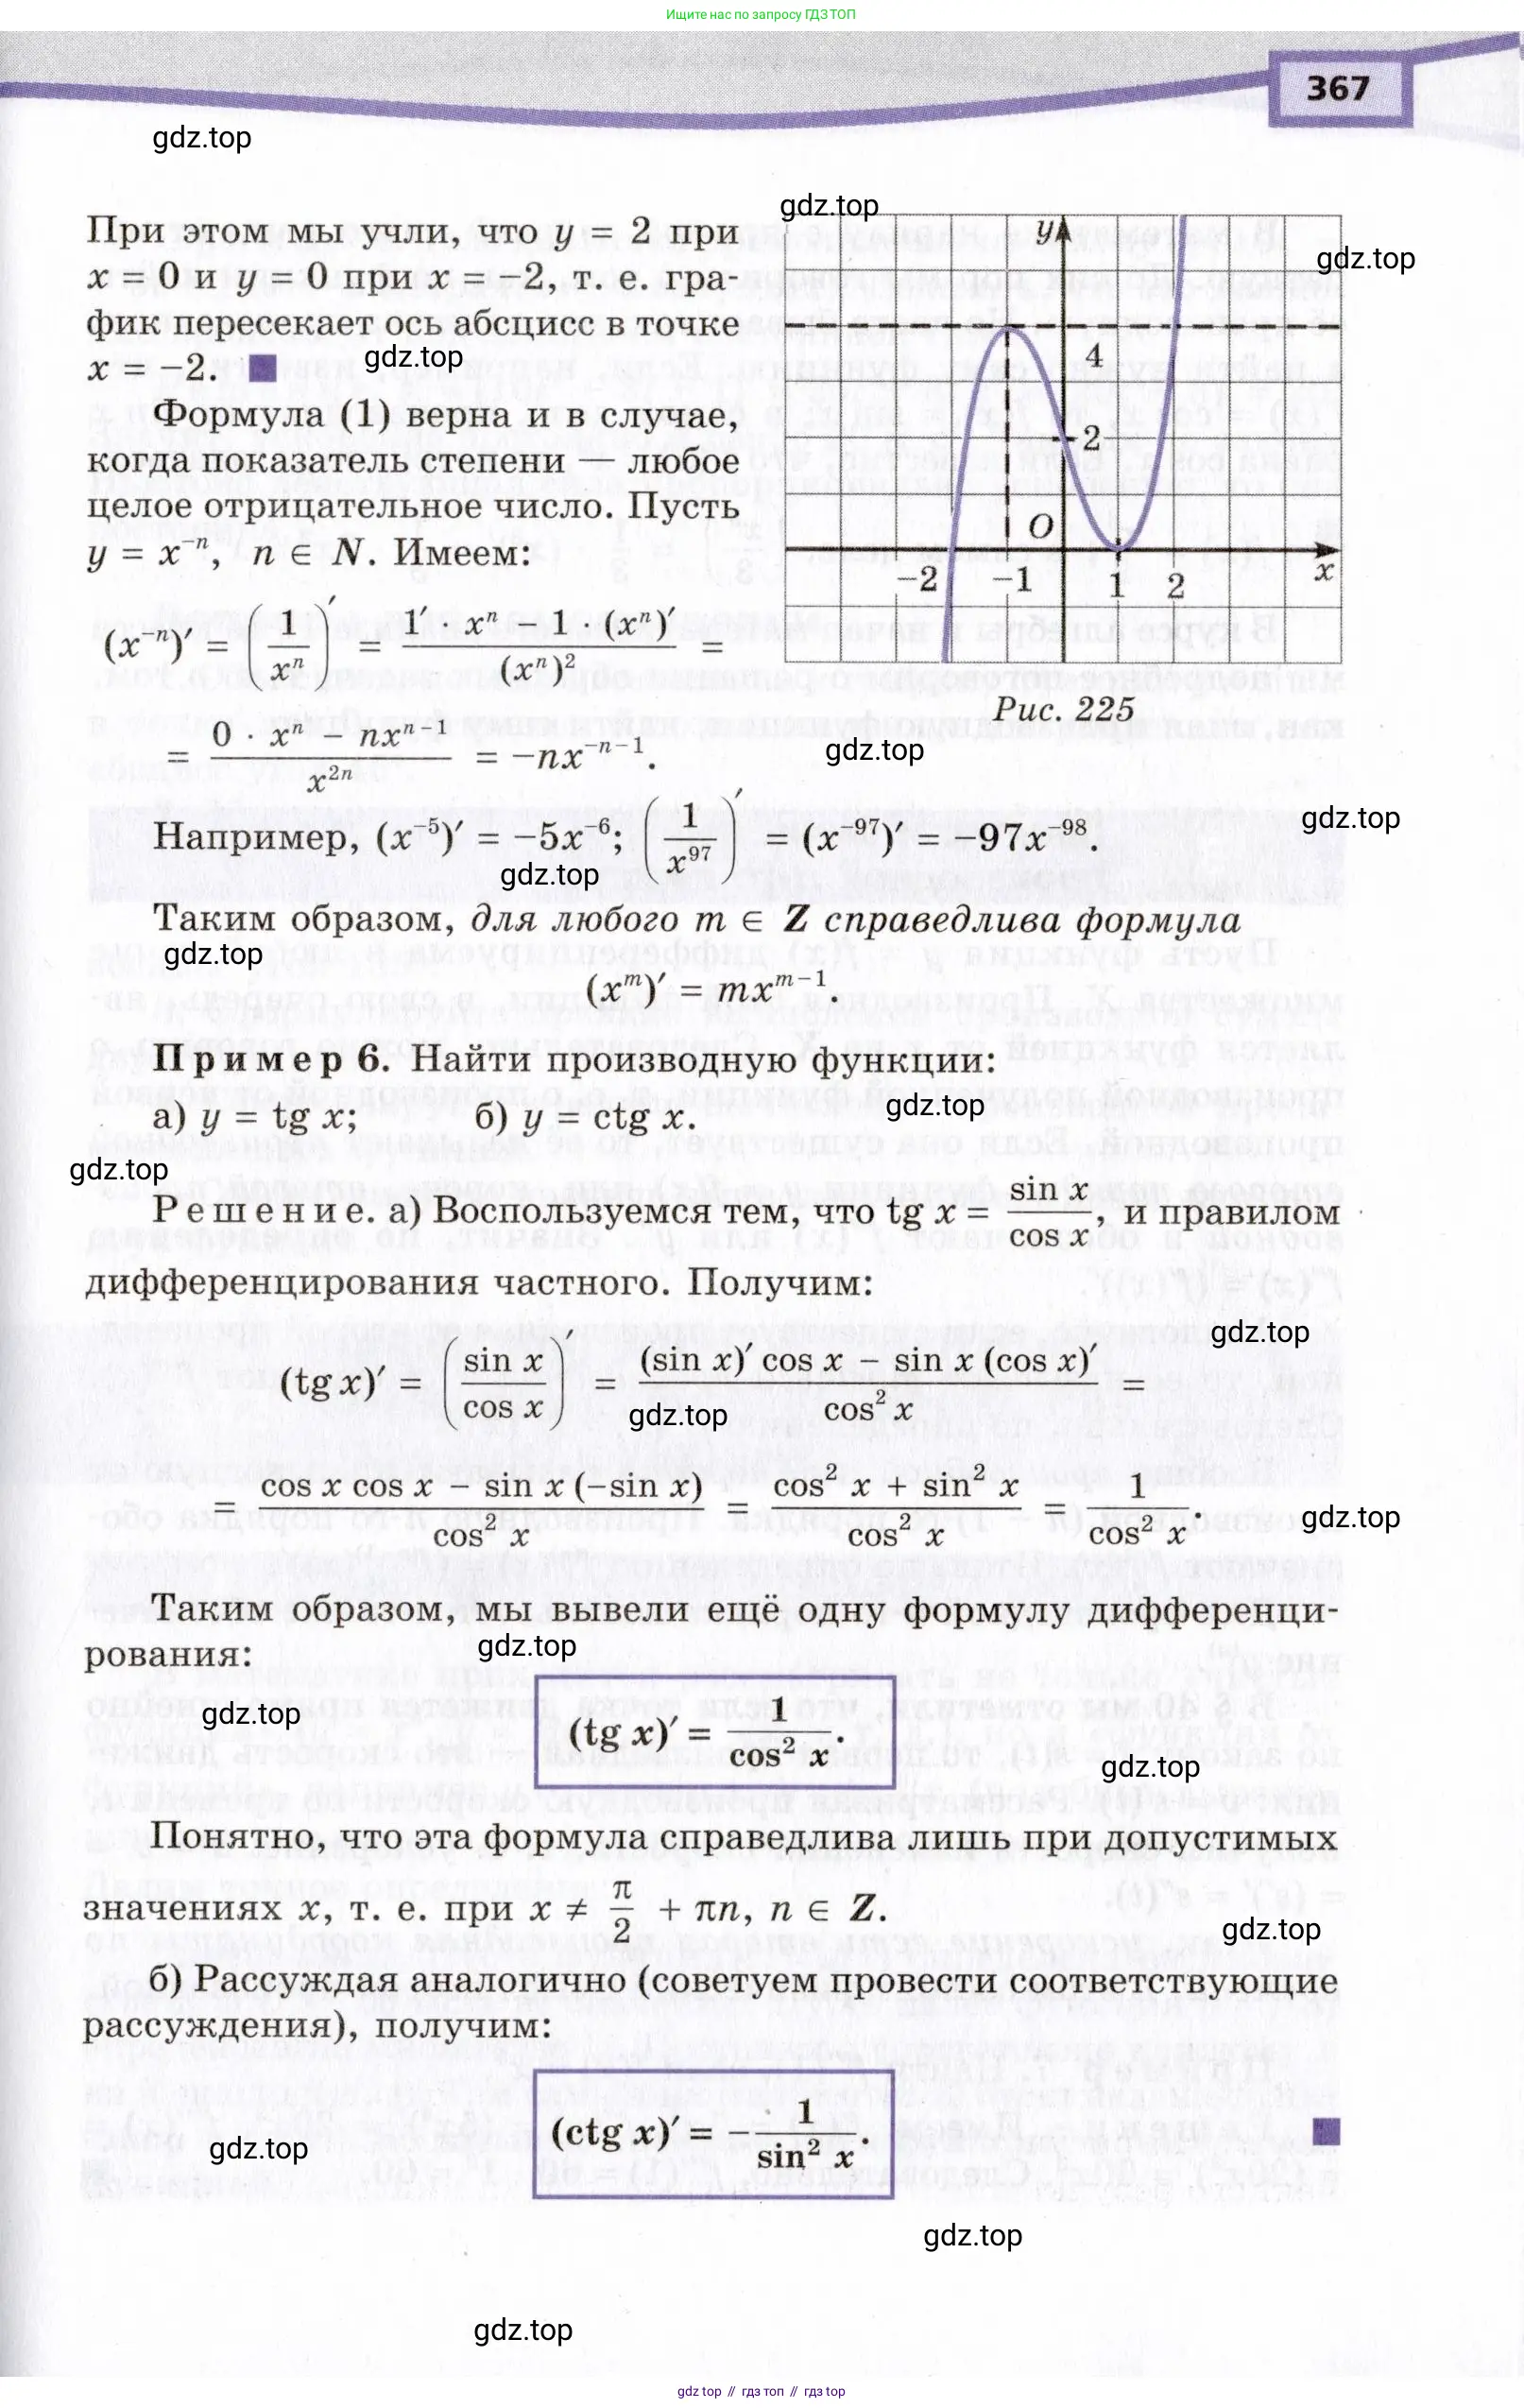 Ищите нас по запросу ГДЗ ТОП
367
gdz.top
При этом мы учли, что y = 2 при
x = 0 и y = 0 при x = −2, т. е. гра-
фик пересекает ось абсцисс в точке
x = −2. ■
gdz.top
Формула (1) верна и в случае,
когда показатель степени — любое
целое отрицательное число. Пусть
y = x⁻ⁿ, n ∈ N. Имеем:
gdz.top
gdz.top
y
4
2
O
−2 −1 1 2 x
Рис. 225
(x⁻ⁿ)′ = (1/xⁿ)′ = (1′ · xⁿ − 1 · (xⁿ)′)/(xⁿ)² =
= (0 · xⁿ − nxⁿ⁻¹)/x²ⁿ = −nx⁻ⁿ⁻¹.
gdz.top
Например, (x⁻⁵)′ = −5x⁻⁶; (1/x⁹⁷)′ = (x⁻⁹⁷)′ = −97x⁻⁹⁸.
gdz.top
gdz.top
Таким образом, для любого m ∈ Z справедлива формула
gdz.top
(xᵐ)′ = mxᵐ⁻¹.
Пример 6. Найти производную функции:
а) y = tg x; б) y = ctg x.
gdz.top
gdz.top
Решение. а) Воспользуемся тем, что tg x = sin x/cos x, и правилом
дифференцирования частного. Получим:
gdz.top
(tg x)′ = (sin x/cos x)′ = ((sin x)′ cos x − sin x (cos x)′)/cos² x =
gdz.top
= (cos x cos x − sin x (−sin x))/cos² x = (cos² x + sin² x)/cos² x = 1/cos² x.
gdz.top
Таким образом, мы вывели ещё одну формулу дифференци-
рования:
gdz.top
gdz.top
(tg x)′ = 1/cos² x.
gdz.top
Понятно, что эта формула справедлива лишь при допустимых
значениях x, т. е. при x ≠ π/2 + πn, n ∈ Z.
gdz.top
б) Рассуждая аналогично (советуем провести соответствующие
рассуждения), получим:
(ctg x)′ = −1/sin² x. ■
gdz.top
gdz.top
gdz.top
gdz top // гдз топ // гдз top